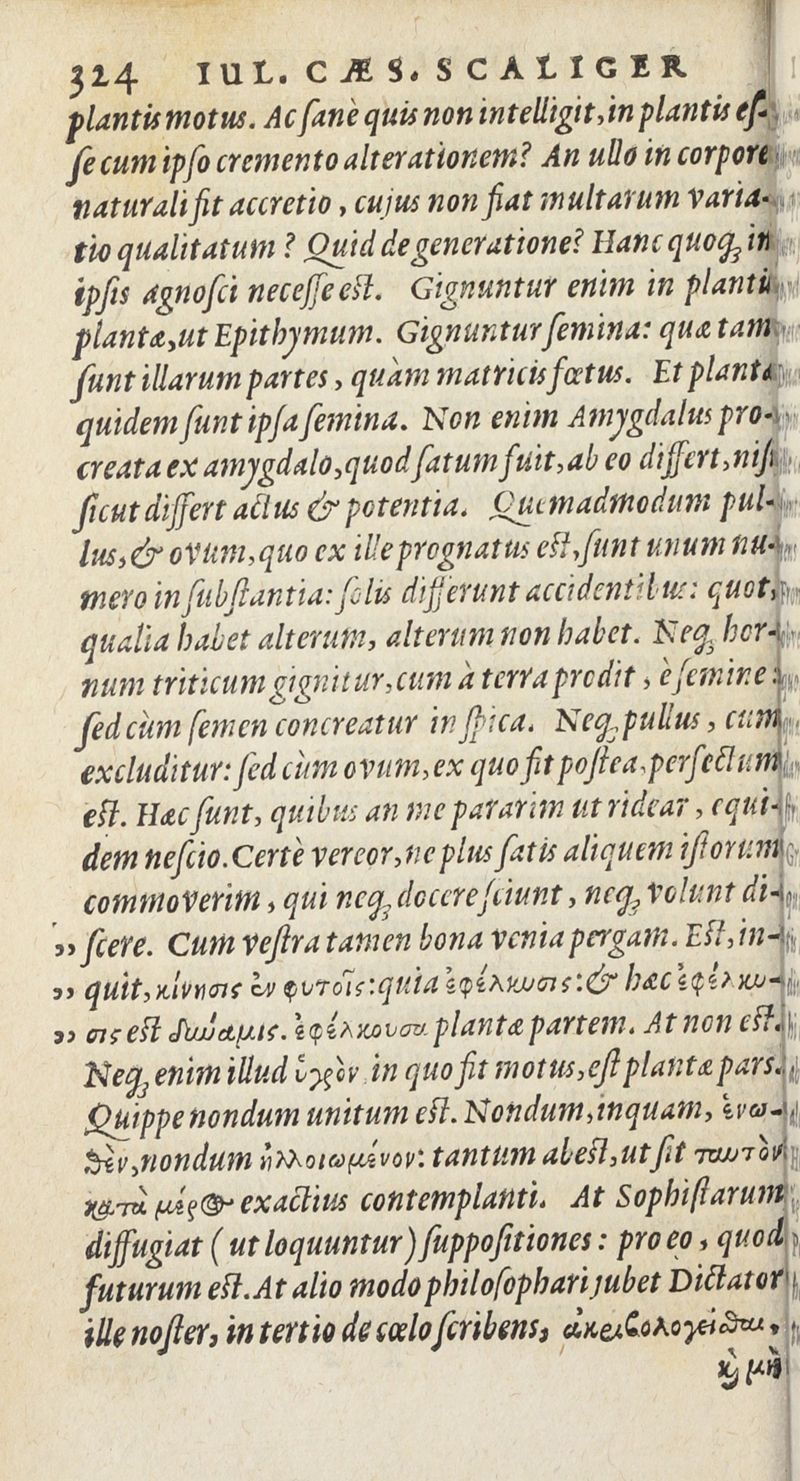 324 IUL. CÆS. SCALIGER
plantis motus. Ac ſanè quis non intelligit, in plantis eſ-
ſe cum ipſo cremento alterationem? An ullo in corpore
naturali fit accretio, cujus non fiat multarum varia-
tio qualitatum? Quid de generatione? Hanc quoq; in
ipſis agnoſci neceſſe eſt. Gignuntur enim in plantis
plantæ, ut Epithymum. Gignuntur ſemina: quæ tam
ſunt illarum partes, quàm matricis fœtus. Et plantæ
quidem ſunt ipſa ſemina. Non enim Amygdalus pro-
creata ex amygdalo, quod ſatum fuit, ab eo differt, niſi
ſicut differt actus & potentia. Quemadmodum pul-
lus, & ovum, quo ex ille prognatus eſt, ſunt unum nu-
mero in ſubſtantia: ſolis differunt accidentibus: quot,
qualia habet alterum, alterum non habet. Neq; hor-
num triticum gignitur, cum à terra prodit, è ſemine:
ſed cùm ſemen concreatur in ſpica. Neq; pullus, cum
excluditur: ſed cùm ovum, ex quo fit poſtea, perfectum
eſt. Hæc ſunt, quibus an me pararim ut ridear, equi-
dem neſcio. Certè vereor, ne plus ſatis aliquem iſtorum
commoverim, qui neq; docere ſciunt, neq; volunt di-
„ ſcere. Cum veſtra tamen bona venia pergam. Eſt, in-
„ quit, κίνησις ἐν φυτοῖς: quia ἐφέλκυσις: & hæc ἐφέλκυ-
„ σις eſt δυύαμις. ἐφέλκουσα plantæ partem. At non eſt.
Neq; enim illud ὑγρὸν in quo fit motus, eſt plantæ pars.
Quippe nondum unitum eſt. Nondum, inquam, ἑνω-
θὲν, nondum ἠλλοιωμένον: tantum abeſt, ut ſit ταυτὸν
κατὰ μέρος exactius contemplanti. At Sophiſtarum
diffugiat (ut loquuntur) ſuppoſitiones: pro eo, quod
futurum eſt. At alio modo philoſophari jubet Dictator
ille noſter, in tertio de cœlo ſcribens, ἀκριβολογεῖσθαι,
καὶ μὴ